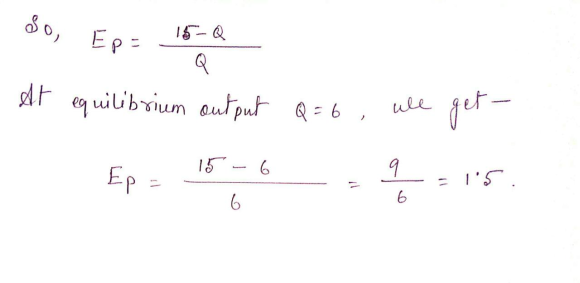 So, Ep = 15-Q / Q
At equilibrium output Q = 6, we get -
Ep = 15 - 6 / 6 = 9 / 6 = 1·5.